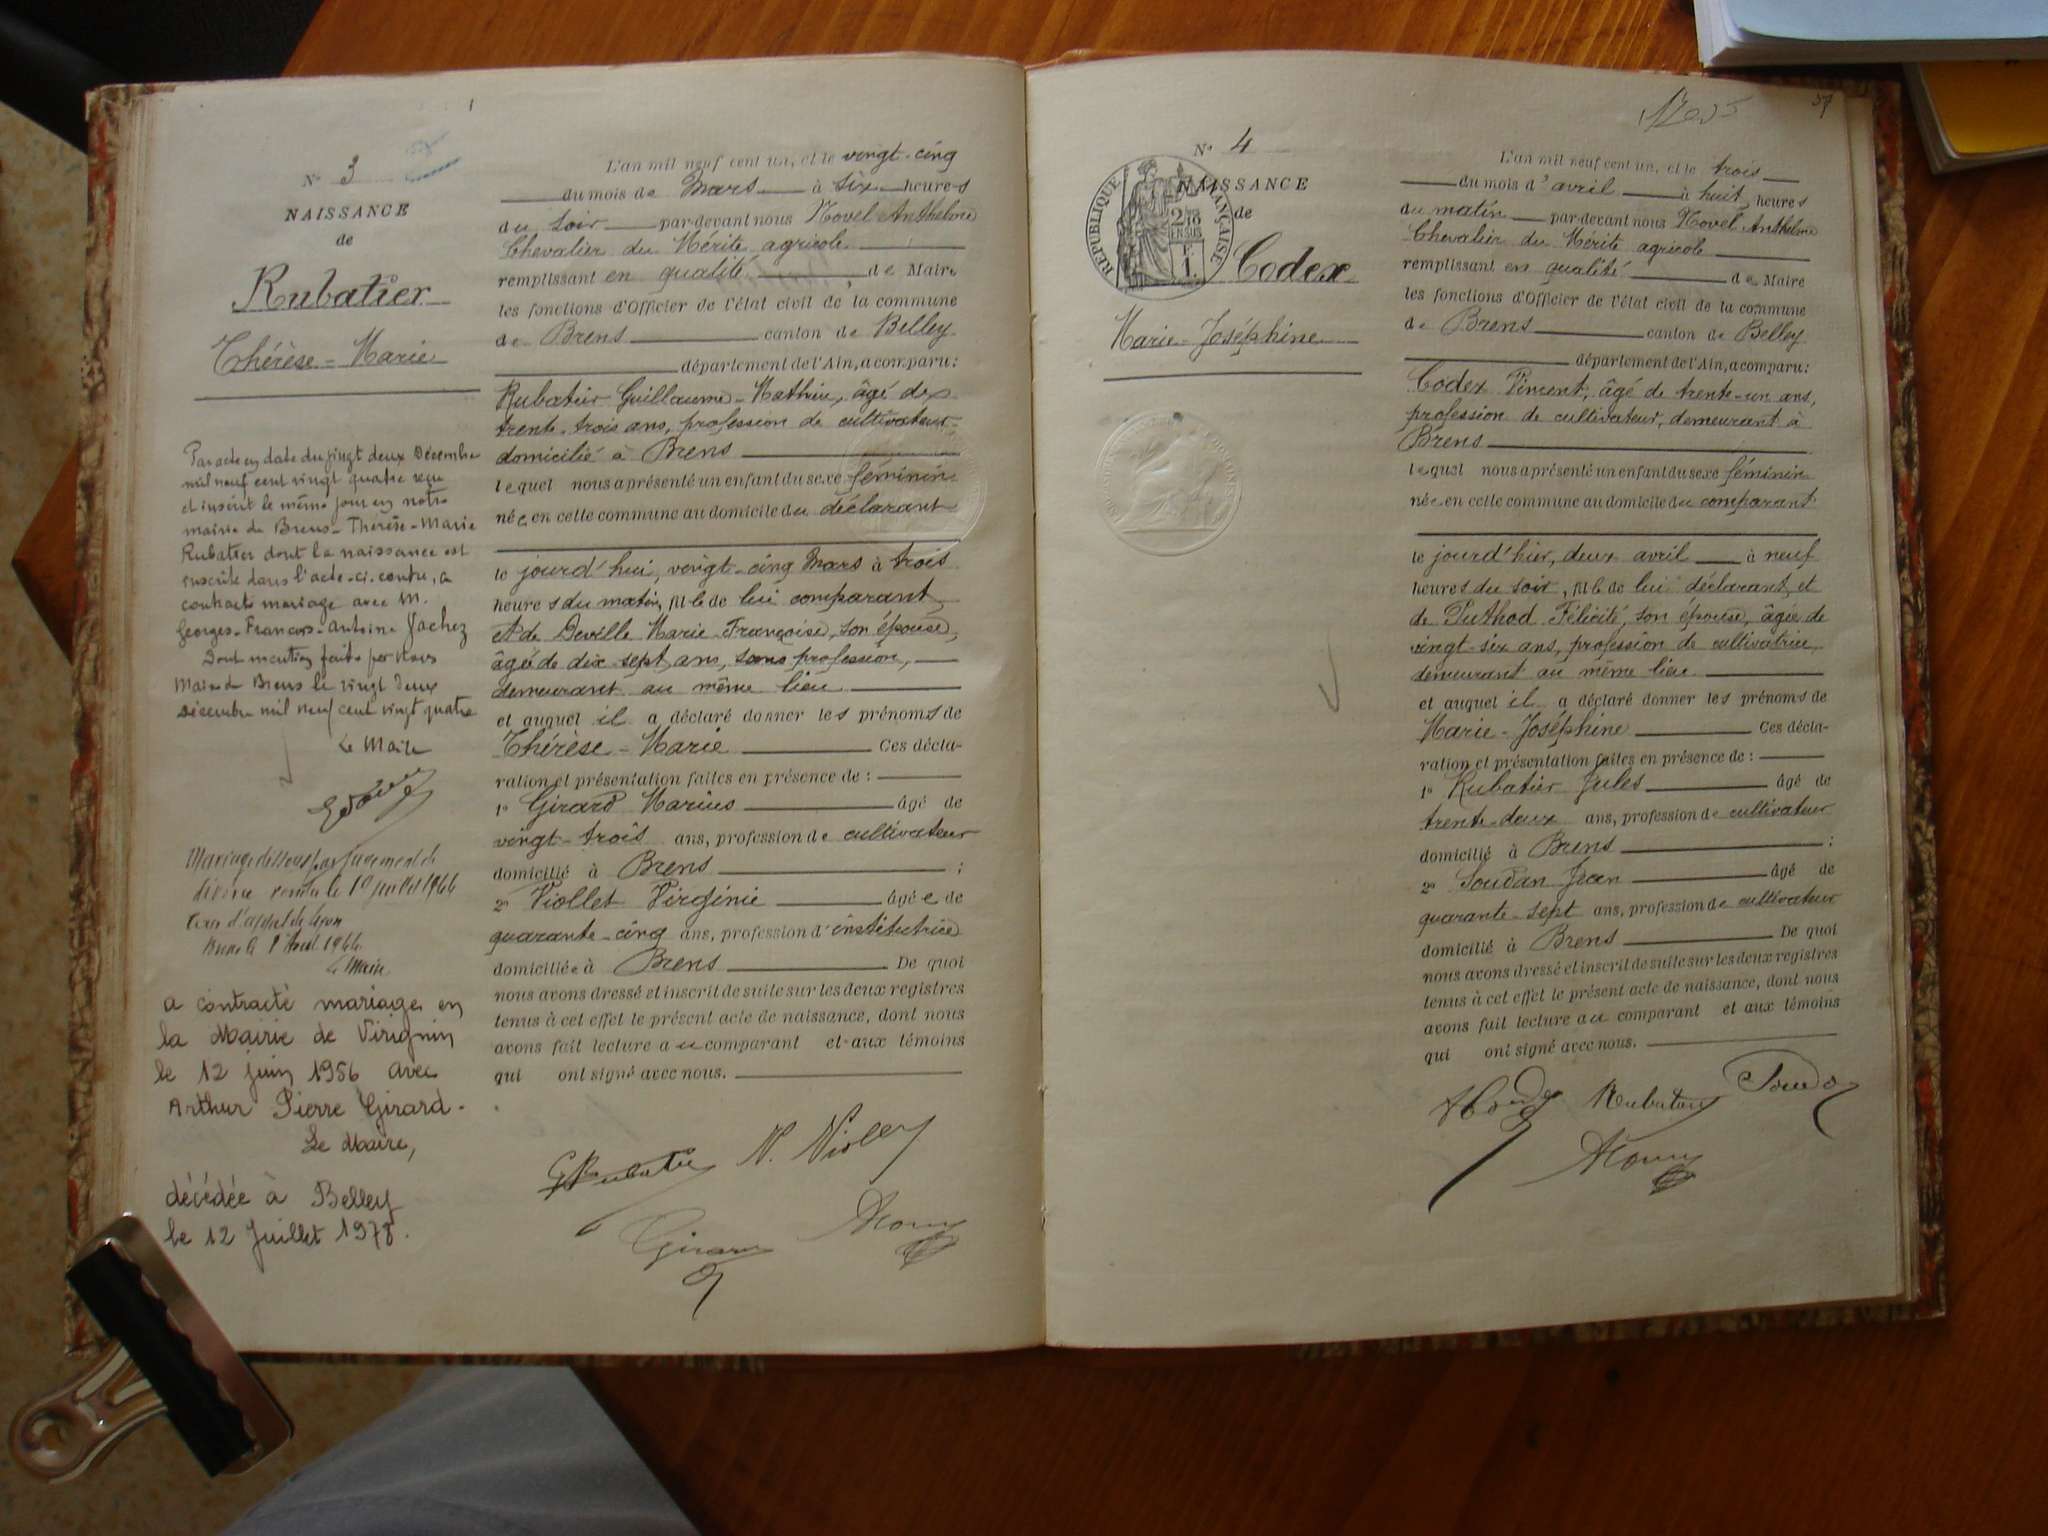 N° 3
NAISSANCE
de
Rubatier
Thérèse-Marie
Par acte en date du vingt deux Décembre
mil neuf cent vingt quatre reçu
et inscrit le même jour en notre
mairie de Brens - Thérèse-Marie
Rubatier dont la naissance est
inscrite dans l'acte-ci-contre, a
contracté mariage avec M.
Georges-François-Antoine Jachez
Dont mention faite par Nous
Maire de Brens le vingt deux
Décembre mil neuf cent vingt quatre
Le Maire
Mariage dissous par jugement de
divorce rendu le 10 juillet 1944
Cour d'appel de Lyon
Brens le
1944.
Le Maire
a contracté mariage en
la Mairie de Virignin
le 12 juin 1956 avec
Arthur Pierre Girard.
Le Maire,
décédée à Belley
le 12 Juillet 1978.
L'an mil neuf cent un, et le vingt-cinq
du mois de Mars à six heures
du soir par-devant nous Novel Anthelme
Chevalier du Mérite agricole
remplissant en qualité de Maire
les fonctions d'Officier de l'état civil de la commune
de Brens canton de Belley
département de l'Ain, a comparu:
Rubatier Guillaume-Mathieu, âgé de
trente-trois ans, profession de cultivateur
domicilié à Brens
lequel nous a présenté un enfant du sexe féminin
née en cette commune au domicile du déclarant
le jourd'hui, vingt-cinq Mars à trois
heures du matin, fille de lui comparant
et de Deville Marie-Françoise, son épouse,
âgée de dix-sept ans, sans profession,
demeurant au même lieu
et auquel il a déclaré donner les prénoms de
Thérèse-Marie Ces décla-
ration et présentation faites en présence de :
1° Girard Marius âgé de
vingt-trois ans, profession de cultivateur
domicilié à Brens ;
2° Viollet Virginie âgée de
quarante-cinq ans, profession d'institutrice
domiciliée à Brens De quoi
nous avons dressé et inscrit de suite sur les deux registres
tenus à cet effet le présent acte de naissance, dont nous
avons fait lecture au comparant et aux témoins
qui ont signé avec nous.
G Rubatier V. Viollet
Girard Novel
37
N° 4
NAISSANCE
de
RÉPUBLIQUE FRANÇAISE
Codex
Marie-Joséphine
L'an mil neuf cent un, et le trois
du mois d'avril à huit heures
du matin par-devant nous Novel Anthelme
Chevalier du Mérite agricole
remplissant en qualité de Maire
les fonctions d'Officier de l'état civil de la commune
de Brens canton de Belley
département de l'Ain, a comparu:
Codex Vincent, âgé de trente-un ans,
profession de cultivateur, demeurant à
Brens
lequel nous a présenté un enfant du sexe féminin
née en cette commune au domicile du comparant
le jourd'hier, deux avril à neuf
heures du soir, fille de lui déclarant et
de Puthod Félicité, son épouse, âgée de
vingt-six ans, profession de cultivatrice,
demeurant au même lieu
et auquel il a déclaré donner les prénoms de
Marie-Joséphine Ces décla-
ration et présentation faites en présence de :
1° Rubatier Jules âgé de
trente-deux ans, profession de cultivateur
domicilié à Brens ;
2° Soudan Jean âgé de
quarante-sept ans, profession de cultivateur
domicilié à Brens De quoi
nous avons dressé et inscrit de suite sur les deux registres
tenus à cet effet le présent acte de naissance, dont nous
avons fait lecture au comparant et aux témoins
qui ont signé avec nous.
Rubatier Soudan
Novel